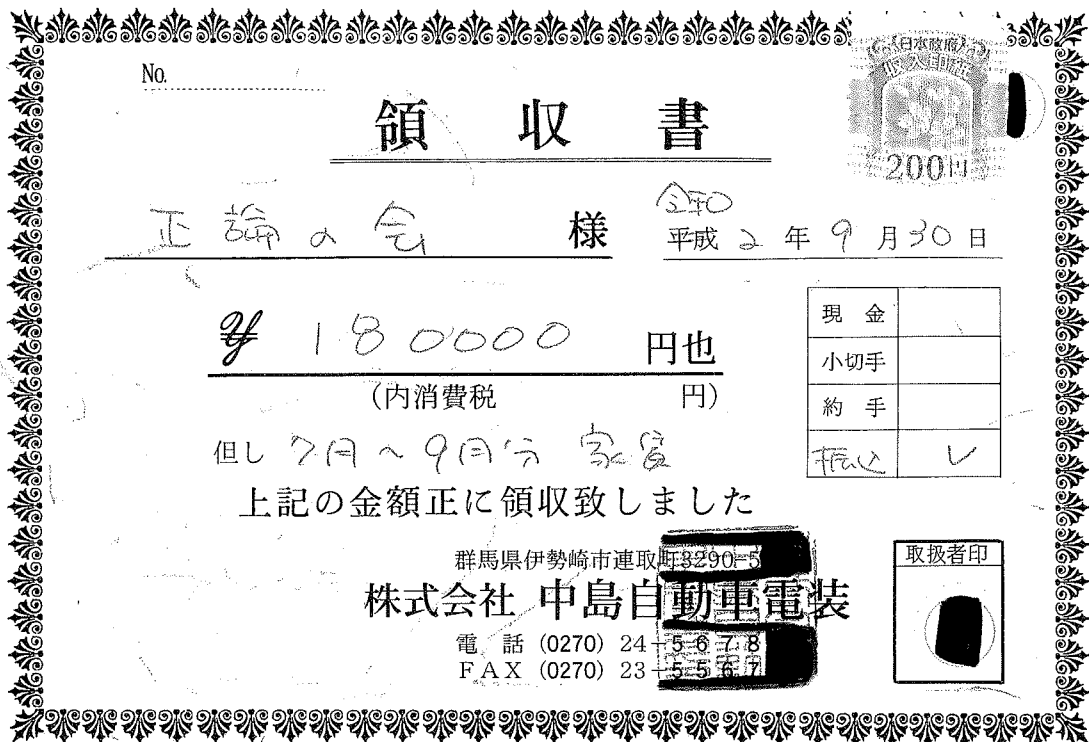 No.
日本政府
収入印紙
200円
領収書
正論の会 様
令和
平成 2 年 9 月 30 日
¥ 180000 円也
(内消費税 円)
現金
小切手
約手
振込 ✓
但し 7月~9月分 家賃
上記の金額正に領収致しました
群馬県伊勢崎市連取町3290-5
株式会社 中島自動車電装
電話 (0270) 24-5678
FAX (0270) 23-5567
取扱者印